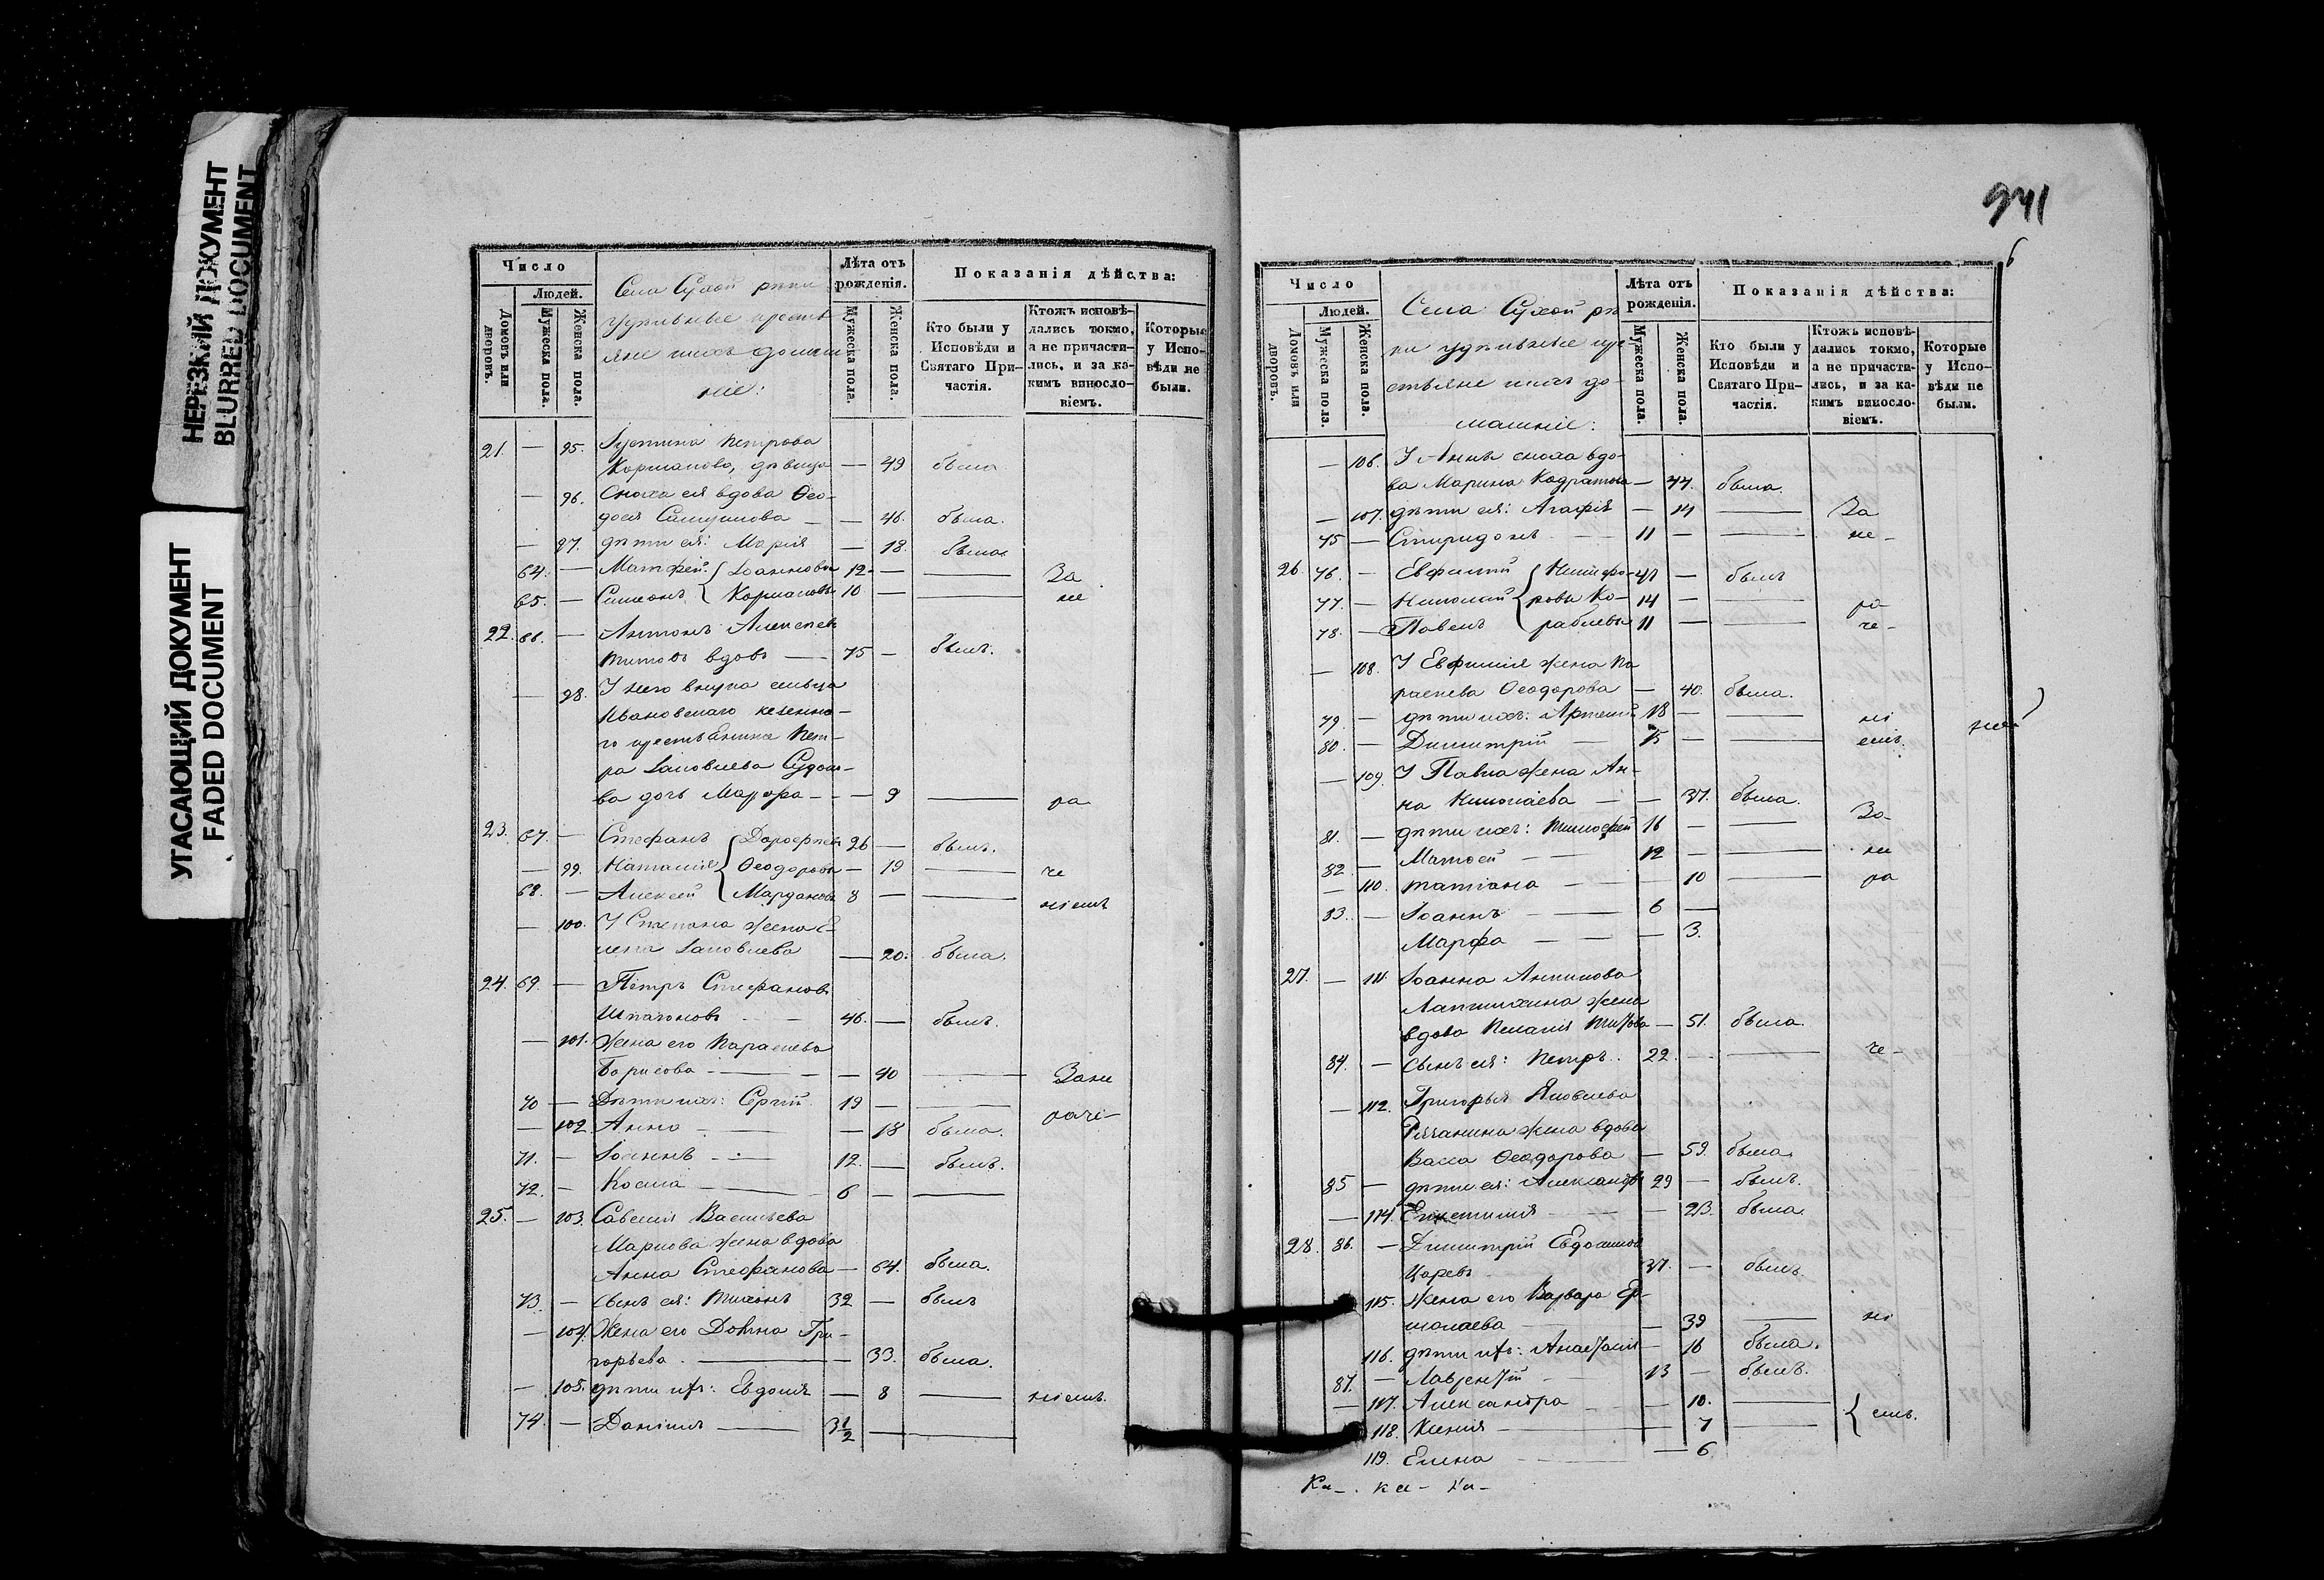 НЕРЕЗКИЙ ДОКУМЕНТ
BLURRED DOCUMENT
УГАСАЮЩИЙ ДОКУМЕНТ
FADED DOCUMENT
Число
Людей.
Домовъ или дворовъ.
Мужеска пола.
Женска пола.
Села Сухой рѣки
удѣльные кресть
яне ихъ домаш
ніе:
Лѣта отъ рожденія.
Мужеска пола.
Женска пола.
Показанія дѣйства:
Кто были у Исповѣди и Святаго Причастія.
Ктожъ исповѣдались токмо, а не причастились, и за какимъ винословіемъ.
Которые у Исповѣди не были.
21. — 95. Іустина Петрова
Корманова, дѣвица — 49 была
— 96. Сноха ея вдова Ѳео-
досія — 46. была.
— 97. дѣти ея: Марія — 18. была
64. — Матфей Іоанновы 12 — — За
65. — Симеонъ Кормановы 10 — — не
22. 66. — Антонъ Алексѣевъ
Титовъ вдовъ — 75 — былъ.
— 98. У него внука сельца
Ивановскаго казенна-
го крестьянина Пет-
ра Іаковлева
ва дочь Марфа — — 9 — ра
23. 67. — Стефанъ Дороѳеевы 26 — былъ.
— 99. Наталія Ѳеодоровы — 19 — че
68. — Алексей 8 — — ніемъ
— 100. У Стефана жена Е-
лена Іаковлева — 20. была.
24. 69. — Петръ Стефановъ
46. — былъ.
— 101. Жена его Параскева
Борисова — — 40 — Зане
70 — Дѣти ихъ: Сергій 19 — — раче-
— 102. Анна — — 18 была.
71. — Іоаннъ — 12. — былъ.
72. — Косма — 6 — —
25. — 103. Савелія Васильева
Маркова жена вдова
Анна Стефанова — 64. была.
73. — Сынъ ея: Тихонъ 32 — былъ
— 104. Жена его Домна Гри-
горьева. — 33. была.
— 105. дѣти ихъ: Евдокія — 8 — ніемъ.
74. — Даніилъ — 3½ — —
941
6
Число
Людей.
Домовъ или дворовъ.
Мужеска пола.
Женска пола.
Села Сухой рѣ
ки удѣльные кре
стьяне ихъ до-
машніе:
Лѣта отъ рожденія.
Мужеска пола.
Женска пола.
Показанія дѣйства:
Кто были у Исповѣди и Святаго Причастія.
Ктожъ исповѣдались токмо, а не причастились, и за какимъ винословіемъ.
Которые у Исповѣди не были.
— 106. У Анны сноха вдо-
ва Марина Кодратова — 44. была.
— 107. дѣти ея: Агафія — 14 — За
75 — Спиридонъ — 11 — — не-
26. 76. — Евфимій Никифо- 41 — былъ
77. — Николай ровы Ко- 14 — — ра
78. — Павелъ раблевы 11 — — че-
— 108. У Евфимія жена Па
раскева Ѳеодорова — 40. была.
79. — дѣти ихъ: Артемій 18 — — ні
80. — Димитрій — 15 — — емъ.
— 109. У Павла жена Ан-
на Николаева — — 37. была.
81. — дѣти ихъ: Тимофей 16 — — За-
82. — Матѳей — 12 — — не
— 110. Татіана — — 10 — ра
83. — Іоаннъ — 6 —
Марфа — — 3.
27. — 111. Іоанна Антипова
жена
вдова Пелагія Титова — 51. была.
84. — Сынъ ея: Петръ. 22. — — че-
— 112. Григорья Яковлева
жена вдова
Васса Ѳеодорова — 59. была.
85 — дѣти ея: Александръ 29 — былъ.
— 114. — — 23. была.
28. 86. — Димитрій Евдокимовъ
Царевъ 37. — былъ.
115. Жена его Варвара Ер-
молаева — — 39 — ні
116. дѣти ихъ: Анастасія — 16 была.
87. — Лаврентій — 13 — былъ.
— 117. Александра — — 10. —
118. Ксенія — 7 — емъ.
119. Елена — — 6
Ка-. ка- ка-